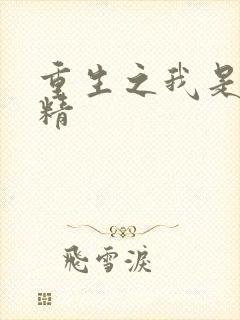 重生之我是
精
飛雪淚